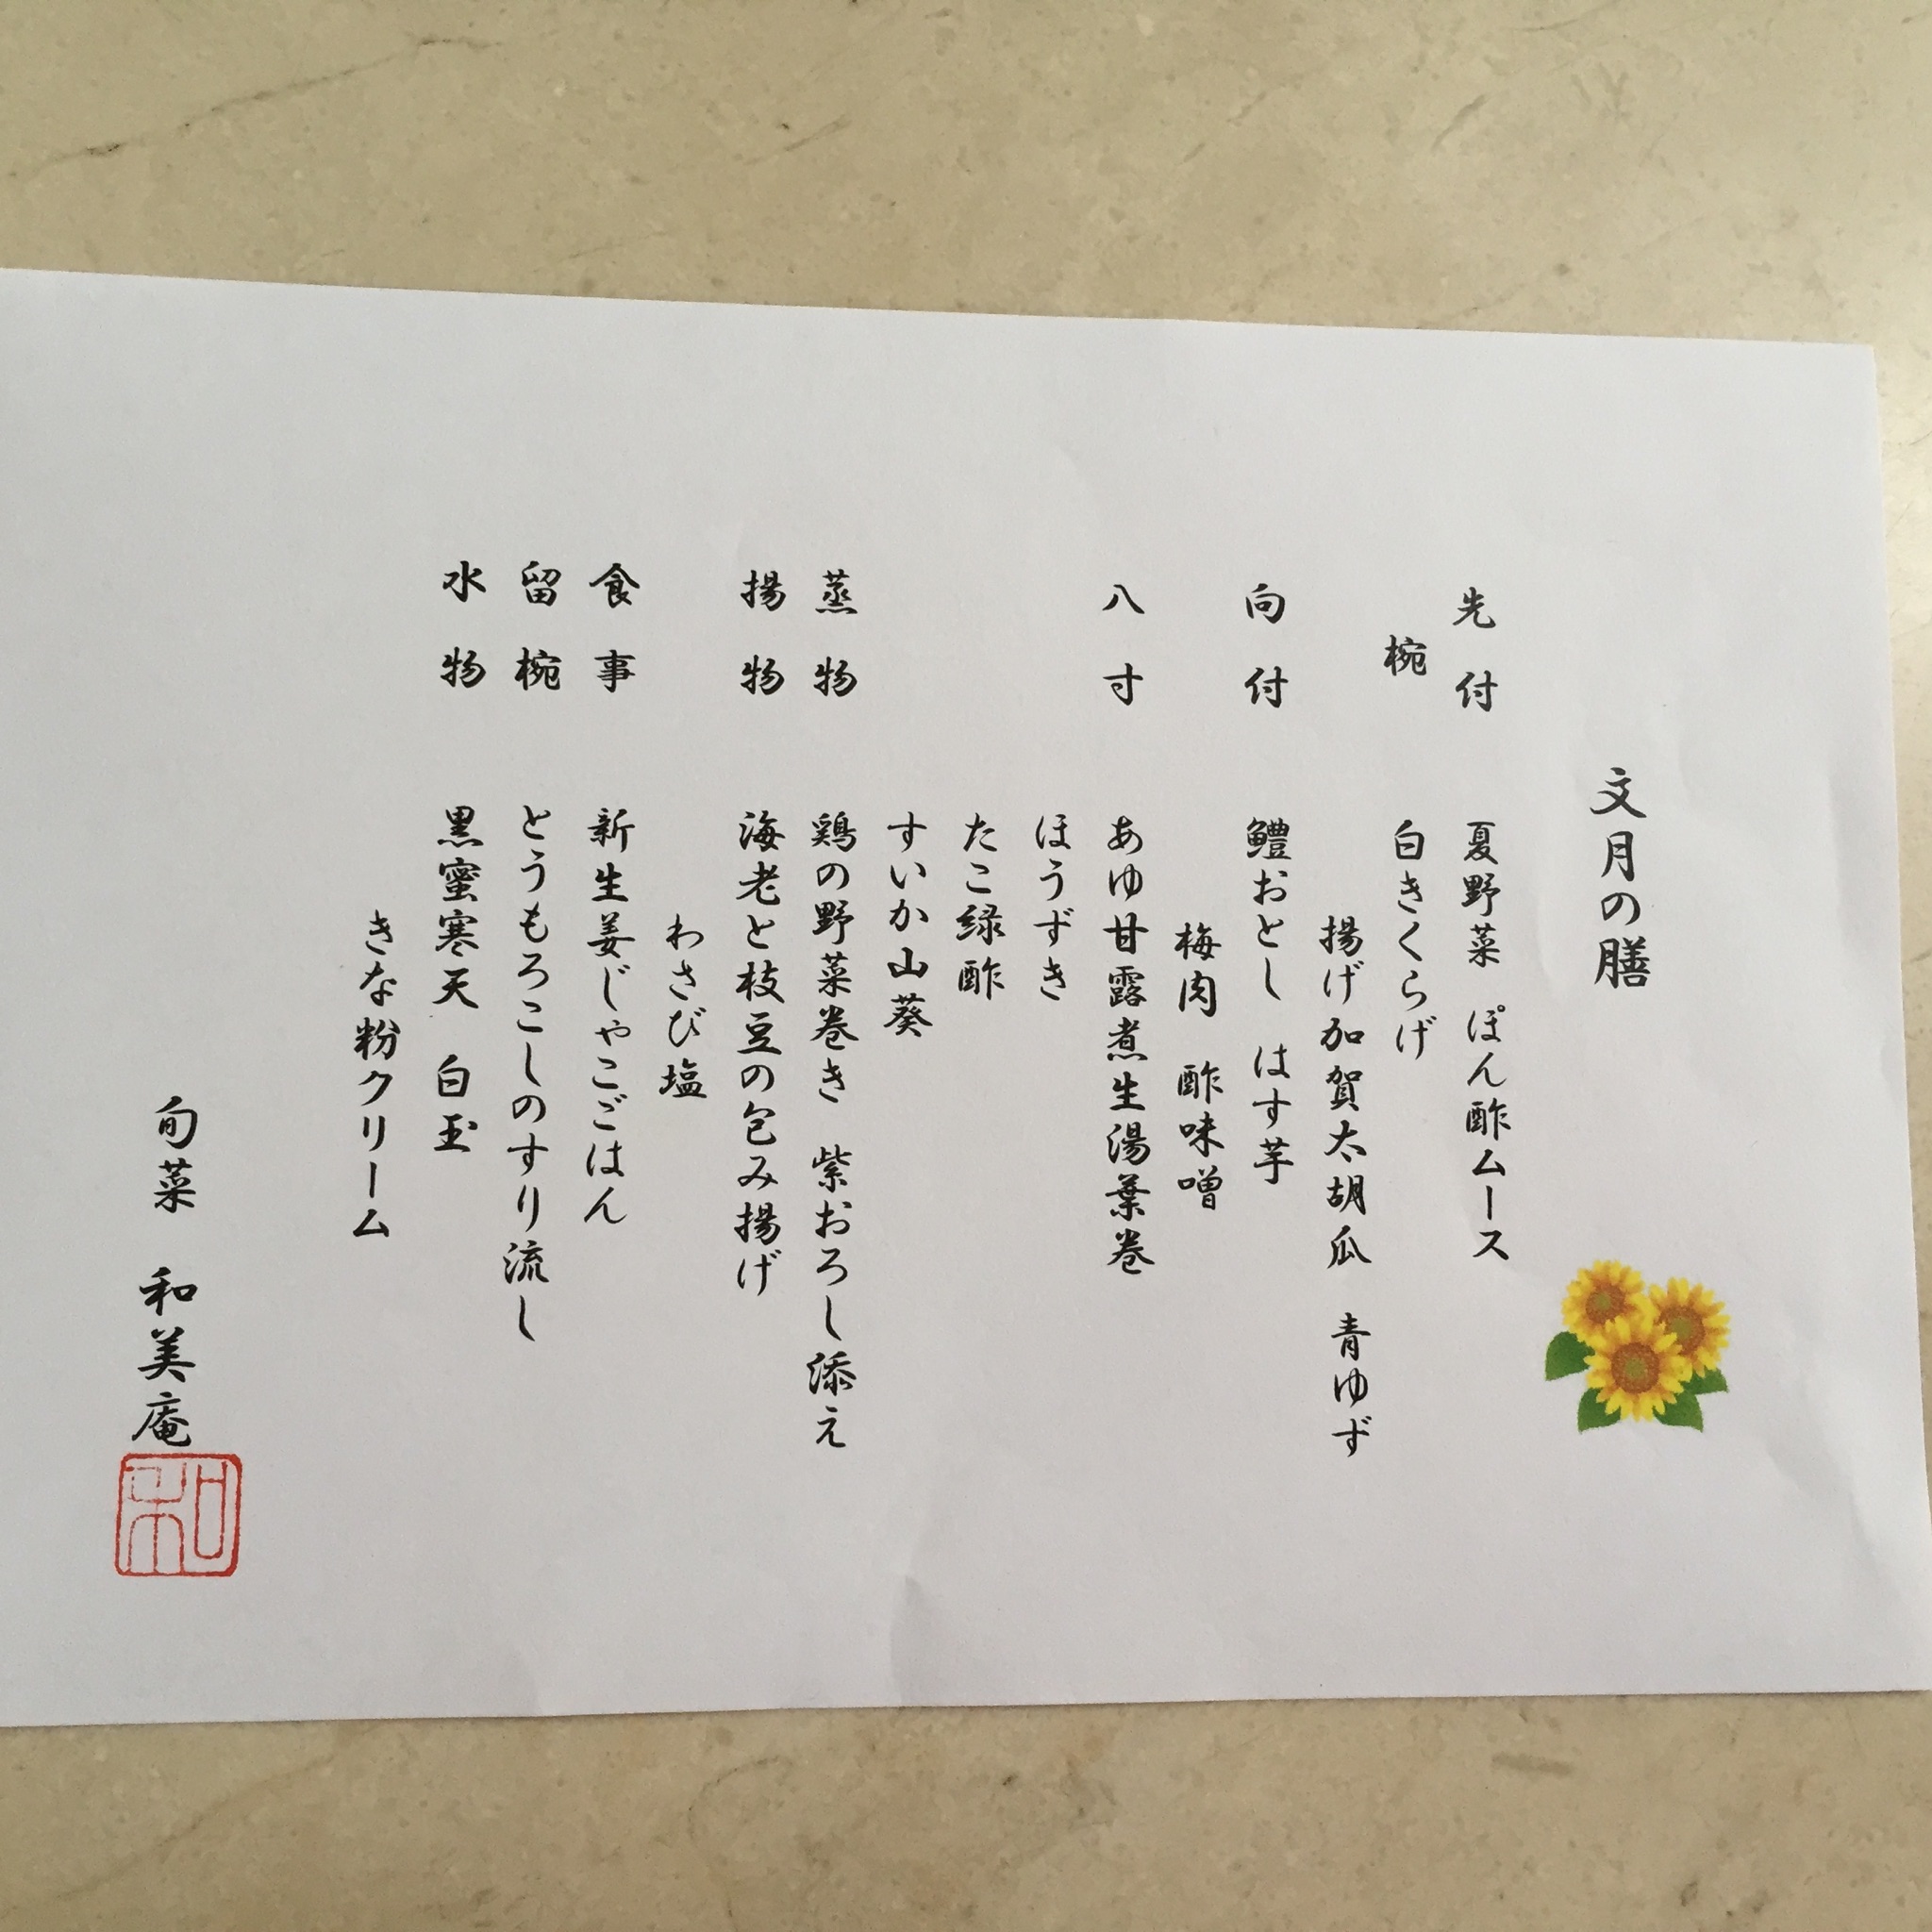 文月の膳
先付　夏野菜　ぽん酢ムース
椀　白きくらげ
揚げ加賀太胡瓜　青ゆず
向付　鱧おとし　はす芋
梅肉　酢味噌
八寸　あゆ甘露煮生湯葉巻
ほうずき
たこ緑酢
すいか山葵
蒸物　鶏の野菜巻き　紫おろし添え
揚物　海老と枝豆の包み揚げ
わさび塩
食事　新生姜じゃこごはん
留椀　とうもろこしのすり流し
水物　黒蜜寒天　白玉
きな粉クリーム
旬菜　和美庵
和